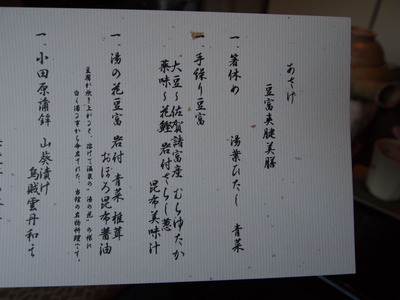 あさげ
豆富爽健美膳
一、箸休め 湯葉ひたし 青菜
一、手繰り豆富
大豆〜佐賀諸富産 むらゆたか
薬味〜花鰹 岩付さらし葱
昆布美味汁
一、湯の花豆富 岩付 青菜 椎茸
おぼろ昆布醤油
豆腐が炊き上がると、溶けて温泉の「湯の花」の様に
白く濁る事から命名された、当館の名物料理です。
一、小田原蒲鉾 山葵漬け
烏賊雲丹和え